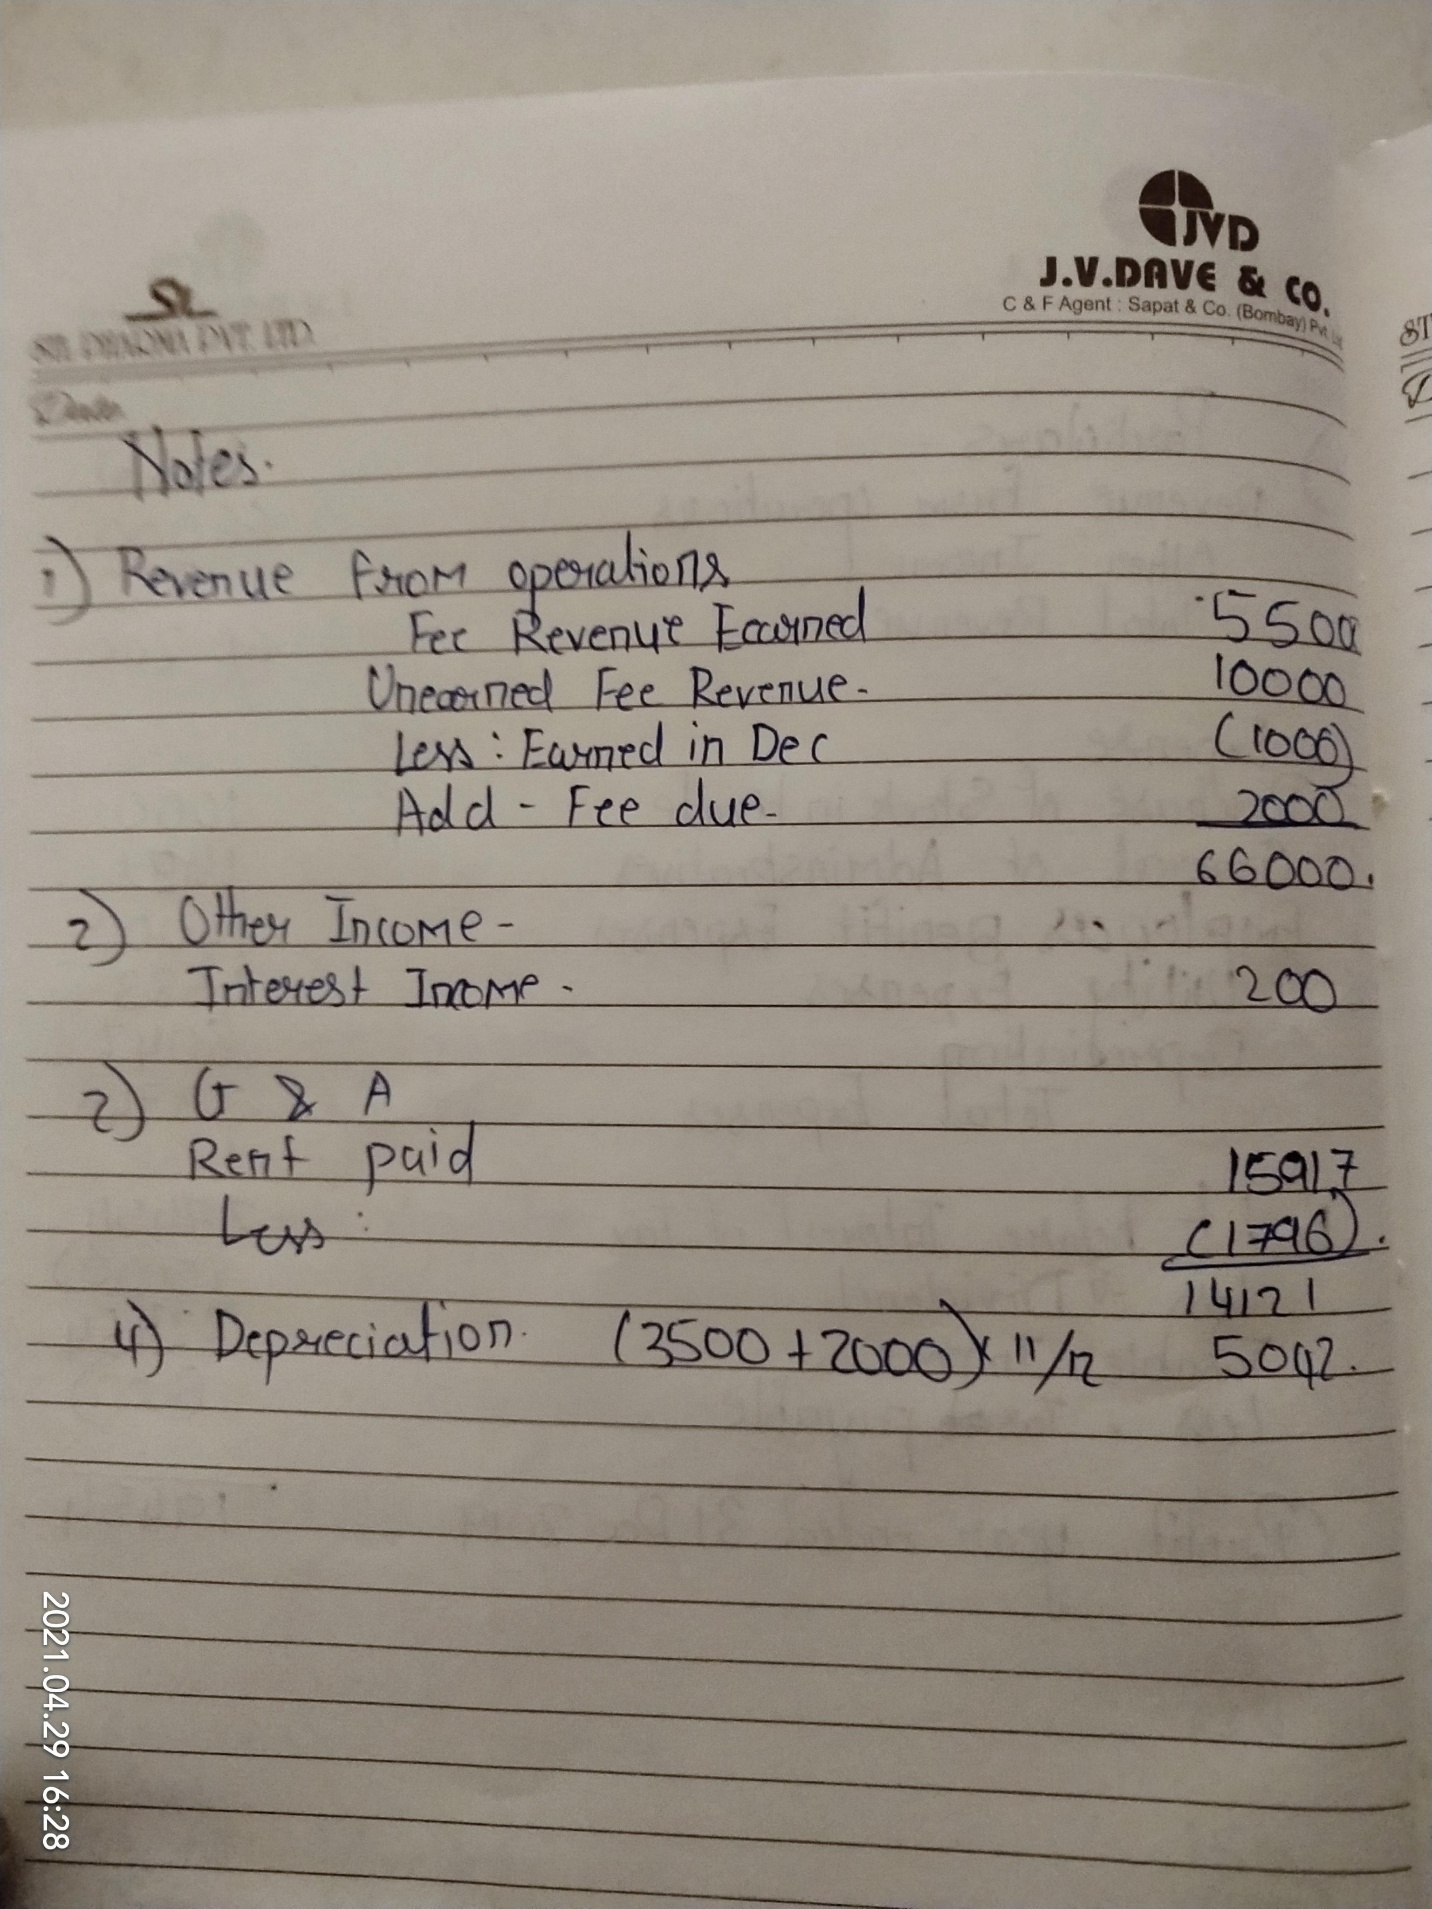 JVD
J.V.DAVE & CO.
C & F Agent : Sapat & Co. (Bombay) Pvt. Ltd
PVT. LTD.
Notes.
1) Revenue from operations
Fee Revenue Earned 55000
Unearned Fee Revenue- 10000
Less : Earned in Dec (1000)
Add - Fee due- 2000
66000.
2) Other Income -
Interest Income - 200
2) G & A
Rent paid 15917
Less : (1796).
14121
4) Depreciation. (3500 + 2000) x 11/12 5042.
2021.04.29 16:28